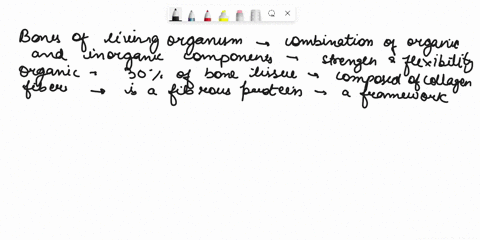 Bones of living organism → combination of organic
and inorganic components → strength & flexibility
organic → 30% of bone tissue → composed of collagen
fiber → is a fibrous protein → a framework